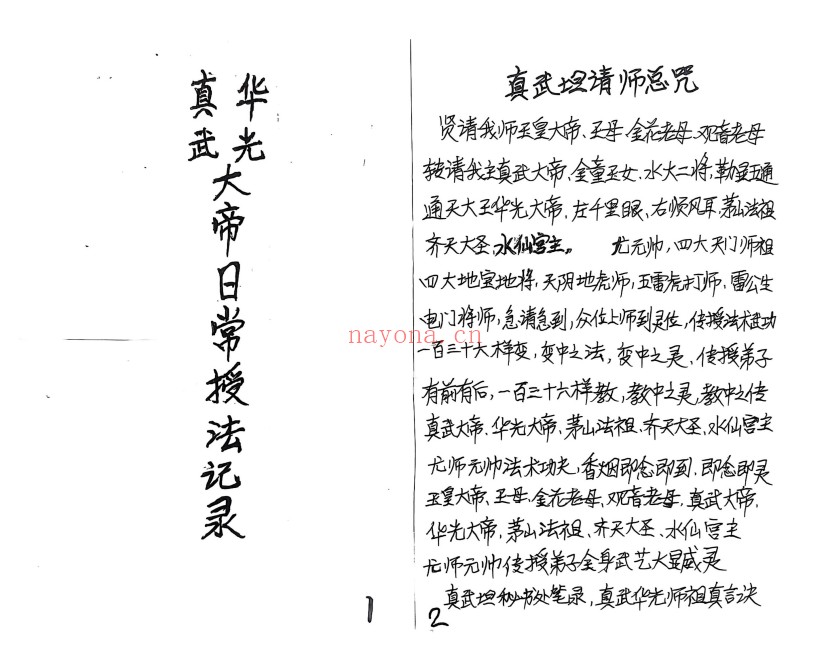 真武 华光
大帝日常授法记录
1
真武坛请师总咒
贤请我师玉皇大帝、王母、金花老母、观音老母
转请我主真武大帝、金童玉女、水火二将,勒显五通
通天大王华光大帝、左千里眼、右顺风耳,茅山法祖
齐天大圣,水仙宫主。 尤元帅,四大天门师祖
四大地宝地将,天阴地虎师,五雷虎打师,雷公生
电门将师,急请急到,众位上师到灵位,传授法术武功
一百三十六样变,变中之法,变中之灵,传授弟子
有前有后,一百三十六样教,教中之灵,教中之传
真武大帝、华光大帝、茅山法祖、齐天大圣、水仙宫主
尤师元帅法术功夫,香烟即念即到、即念即灵
玉皇大帝、王母、金花老母、观音老母,真武大帝、
华光大帝,茅山法祖、齐天大圣、水仙宫主
尤师元帅传授弟子全身武艺大显威灵
真武坛秘书处笔录,真武华光师祖真言决
2
nayona.cn